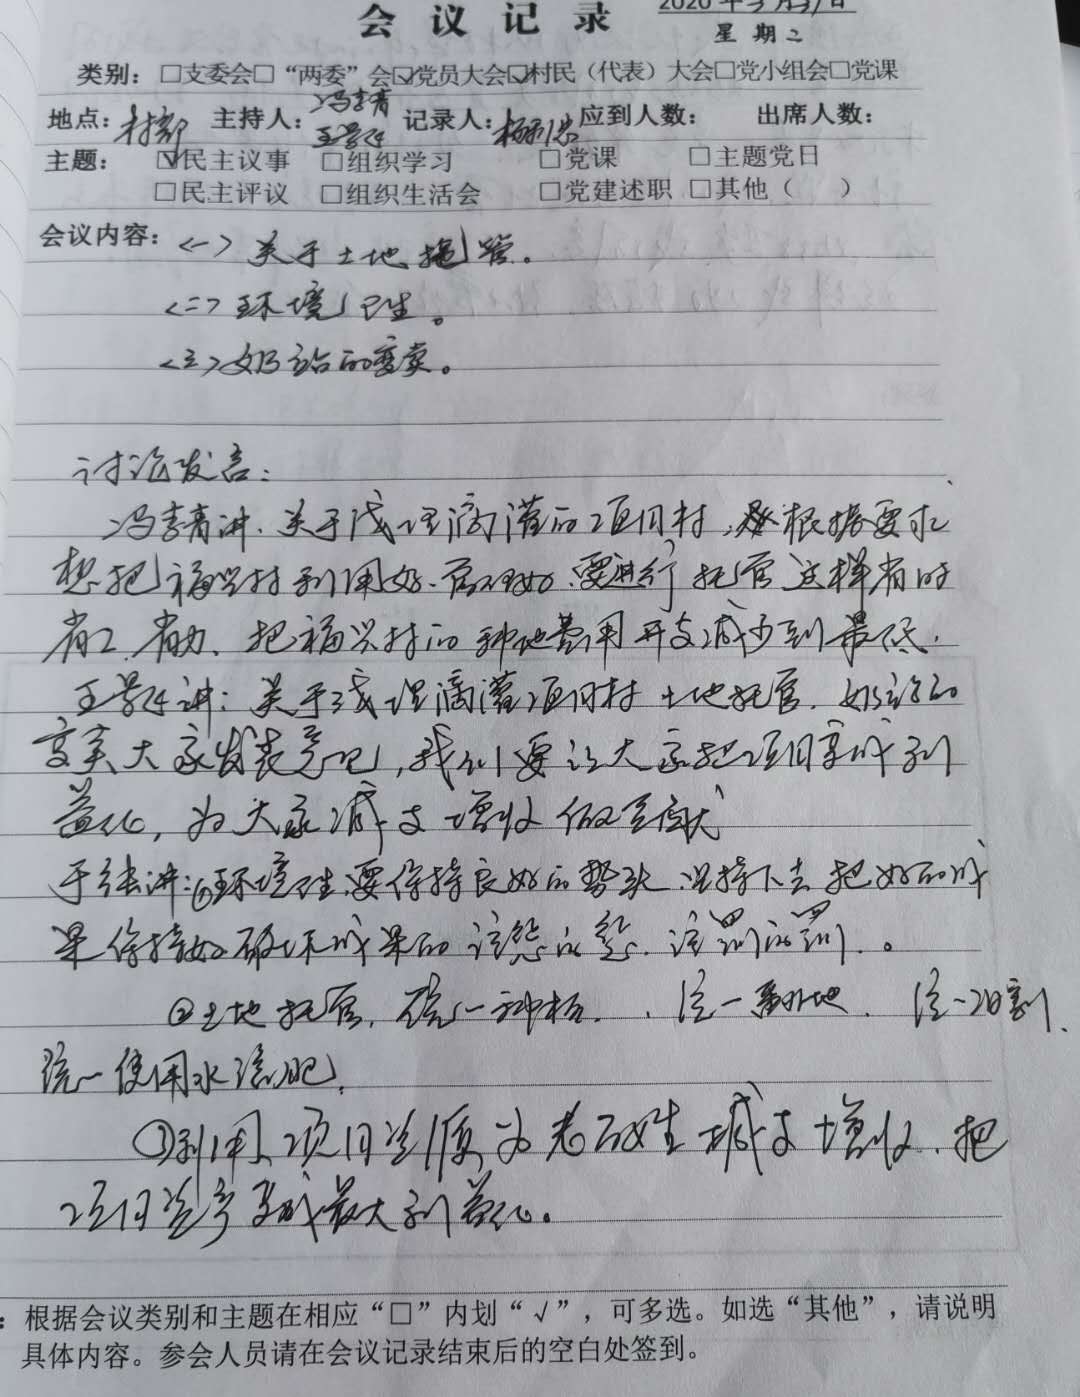 会议记录 2020年3月31日
星期二
类别：□支委会□“两委”会☑党员大会☑村民（代表）大会□党小组会□党课
地点：村部 主持人：冯喜青 记录人： 应到人数： 出席人数：
主题：☑民主议事 □组织学习 □党课 □主题党日
□民主评议 □组织生活会 □党建述职 □其他（ ）
会议内容：<一>关于土地拖管。
<二>环境卫生。
<三>奶站的变卖。
讨论发言：
冯喜青讲.关于浅埋滴灌的项目村,根据要求
想把福兴村利用好.管理好.要进行托管这样省时
省工.省力、把福兴村的种地费用开支减少到最低.
讲:关于浅埋滴灌项目村土地托管.奶站的
变卖大家发表意见,我们要让大家把项目变成利
益化,为大家减支增收做贡献
于 讲:①环境卫生要保持良好的势头.坚持下去把好的成
果保持好破坏成果的该惩的惩.该罚的罚.。
②土地托管,统一种植.、统一翻地.统一收割.
统一使用水溶肥.
③利用项目资源为老百姓减支增收.把
项目资产变成最大利益化。
：根据会议类别和主题在相应“□”内划“√”，可多选。如选“其他”，请说明
具体内容。参会人员请在会议记录结束后的空白处签到。